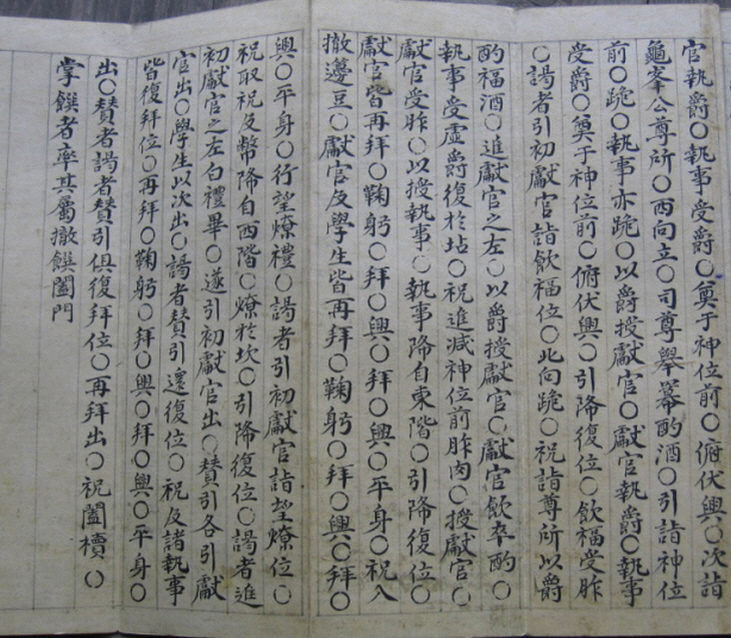 官執爵○執事受爵○奠于神位前○俯伏興○次詣
龜峯公尊所○西向立○司尊擧冪酌酒○引詣神位
前○跪○執事亦跪○以爵授獻官○獻官執爵○執事
受爵○奠于神位前○俯伏興○引降復位○飮福受胙
○謁者引初獻官詣飮福位○北向跪○祝詣尊所以爵
酌福酒○進獻官之左○以爵授獻官○獻官飮卒酌○
執事受虛爵復於坫○祝進减神位前胙肉○授獻官○
獻官受胙○以授執事○執事降自東階○引降復位○
獻官皆再拜○鞠躬○拜○興○拜○興○平身○祝入
撤籩豆○獻官及學生皆再拜○鞠躬○拜○興○拜○
興○平身○行望燎禮○謁者引初獻官詣望燎位○
祝取祝及幣降自西階○燎於坎○引降復位○謁者進
初獻官之左白禮畢○遂引初獻官出○贊引各引獻
官出○學生以次出○謁者贊引還復位○祝及諸執事
皆復拜位○再拜○鞠躬○拜○興○拜○興○平身○
出○贊者謁者贊引俱復拜位○再拜出○祝闔櫝○
掌饌者率其屬撤饌闔門